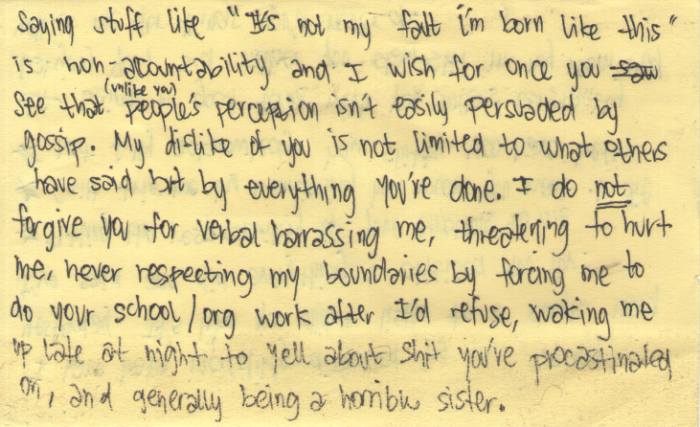 Saying stuff like "It's not my falt i'm born like this"
is non-accountability and I wish for once you saw
(unlike you)
see that people's perception isn't easily persuaded by
gossip. My dislike of you is not limited to what others
have said but by everything you've done. I do not
forgive you for verbal harrassing me, threatening to hurt
me, never respecting my boundaries by forcing me to
do your school/org work after I'd refuse, waking me
up late at night to yell about shit you've procastinated
on, and generally being a horrible sister.